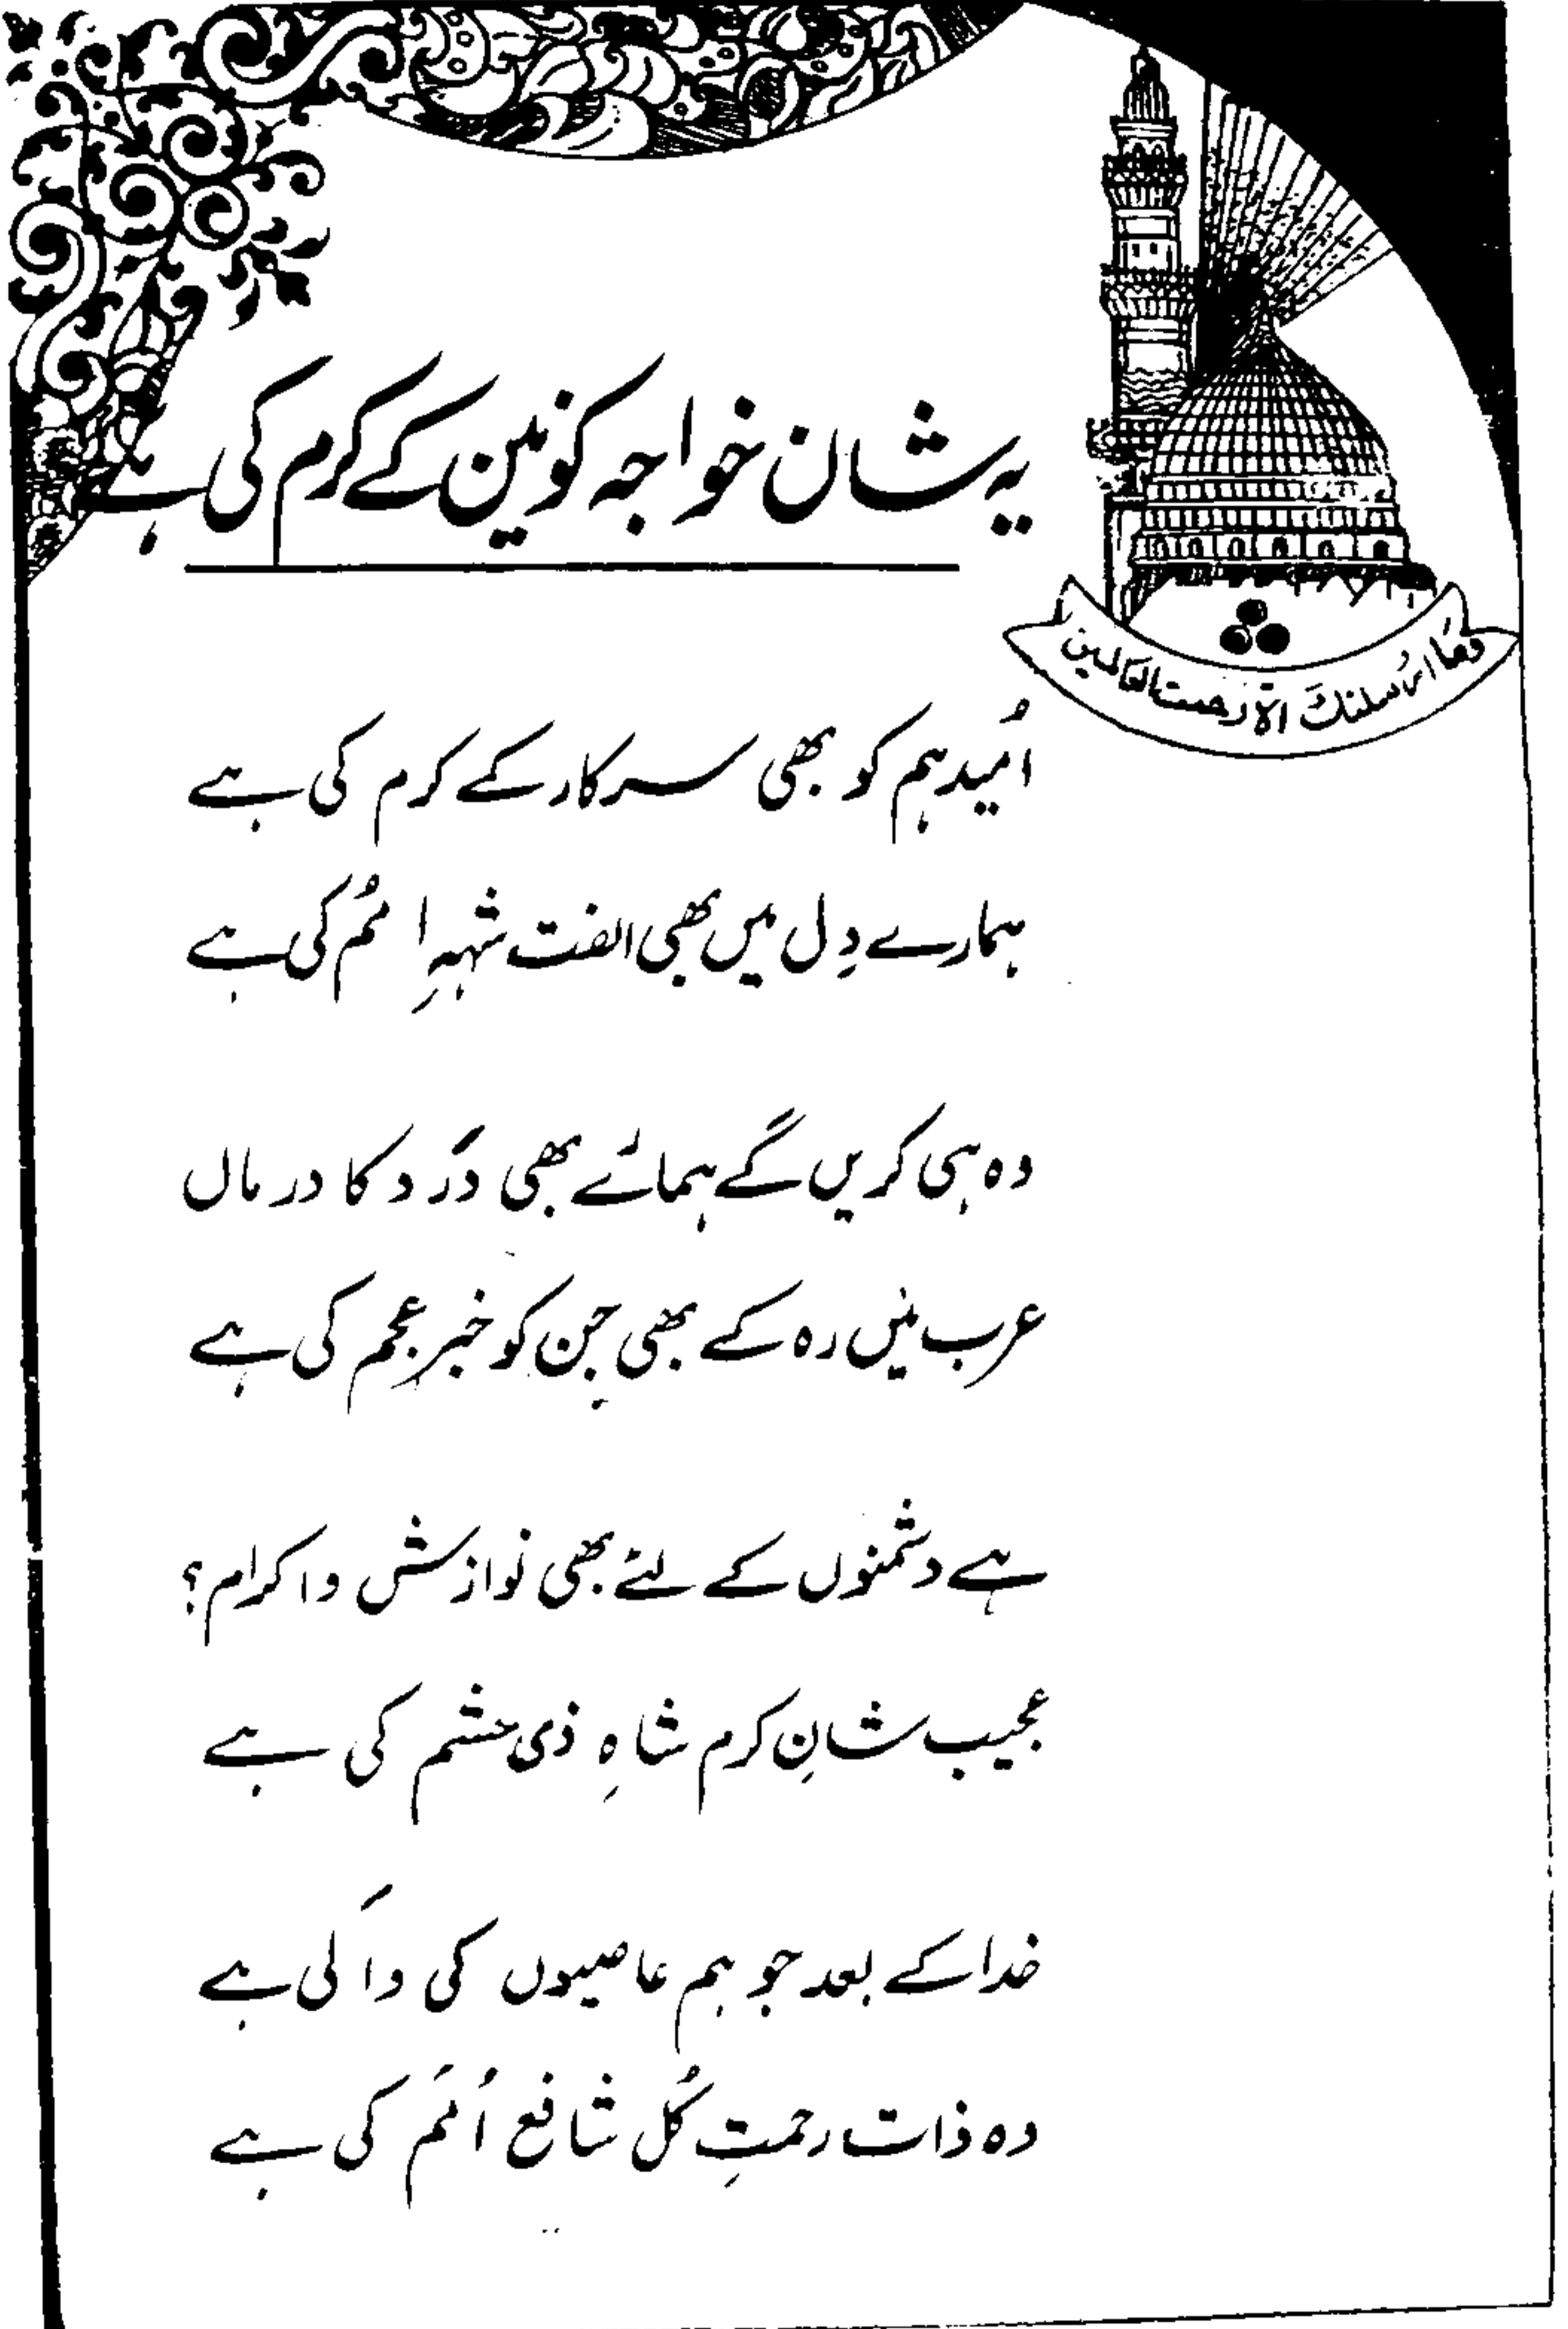 یہ شان خواجہ کونین کے کرم کی ہے
وَمَا اَرْسَلْنٰكَ اِلَّا رَحْمَتَ الِّلْعَالَمِيْن
اُمید ہم کو بھی سرکار کے کرم کی ہے
ہمارے دِل میں بھی الفت شہہِ اُمَم کی ہے
وہ ہی کریں گے ہمائے بھی دَرد کا درماں
عرب میں رہ کے بھی جِن کو خبر عجم کی ہے
ہے دشمنوں کے لئے بھی نوازش و اکرام؟
عجیب شانِ کرم شاہِ ذی حشم کی ہے
خدا کے بعد جو ہم عاصیوں کی والَی ہے
وہ ذات رحمتِ کُل شافع اُمَم کی ہے